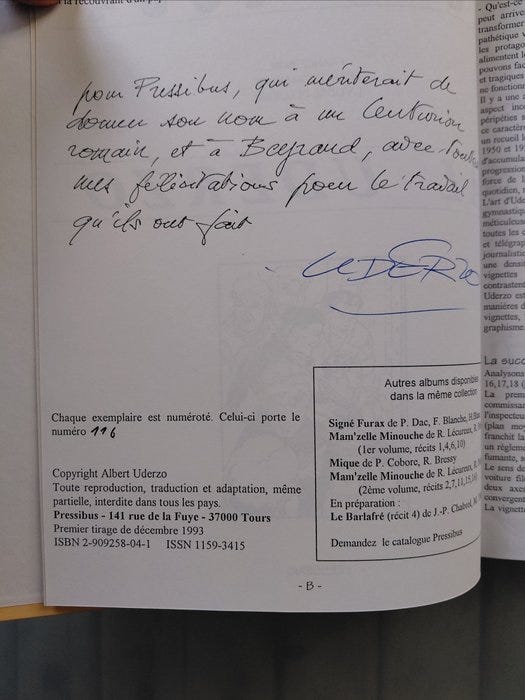 la recouvrant d'un
pour Pressibus, qui mériterait de
donner son nom à un Centurion
romain, et à Beyrand, avec toutes
mes félicitations pour le travail
qu'ils ont fait
UDERZO
Chaque exemplaire est numéroté. Celui-ci porte le
numéro 116
Copyright Albert Uderzo
Toute reproduction, traduction et adaptation, même
partielle, interdite dans tous les pays.
Pressibus - 141 rue de la Fuye - 37000 Tours
Premier tirage de décembre 1993
ISBN 2-909258-04-1 ISSN 1159-3415
Autres albums disponibles
dans la même collection
Signé Furax de P. Dac, F. Blanche, H.
Mam'zelle Minouche de R. Lécureux, R.
(1er volume, récits 1,4,6,10)
Mique de P. Cobore, R. Bressy
Mam'zelle Minouche de R. Lécureux, R.
(2ème volume, récits 2,7,11,15,
En préparation :
Le Barlafré (récit 4) de J.-P. Chabrol, M.
Demandez le catalogue Pressibus
- B -
- Qu'est-ce
peut arrive
transformer
pathétique
les protago
alimentent le
pouvons fac
et tragiques
ne fonction
Il y a une a
aspect inc
péripéties s
ce caractère
un recueil l
1950 et 19
d'accumula
progression
force de la
quotidien,
L'art d'Ude
gymnastiqu
méticuleuse
toutes les c
et télégrap
journalistic
une densi
vignettes
contrastent
Uderzo est
manières d
vignettes,
graphisme
La succ
Analysons
16,17,18 (
La prem
commissar
l'inspecteu
(plan moy
franchit la
un règleme
fumante, s
Le sens de
voiture file
deux axes
convergent
La vignette